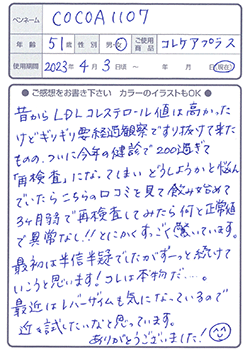 ペンネーム COCOA1107
年齢 51歳 性別 男・女 ご使用商品 コレケアプラス
使用期間 2023年4月3日頃 ～ 年 月 日 現在
●ご感想をお書き下さい カラーのイラストもOK●
昔からLDLコレステロール値は高かった
けどギリギリ要経過観察ですり抜けて来た
ものの、ついに今年の健診で200過ぎて
「再検査」になってしまい どうしようかと悩ん
でいたらこちらの口コミを見て飲み始めて
3ヶ月弱で再検査してみたら何と正常値
で異常なし!! とにかくすっごく驚いています。
最初は半信半疑でしたがずーっと続けて
いこうと思います!コレは本物だ…。
最近はレバーザイムも気になっているので
近々試したいなと思っています。
ありがとうございました!